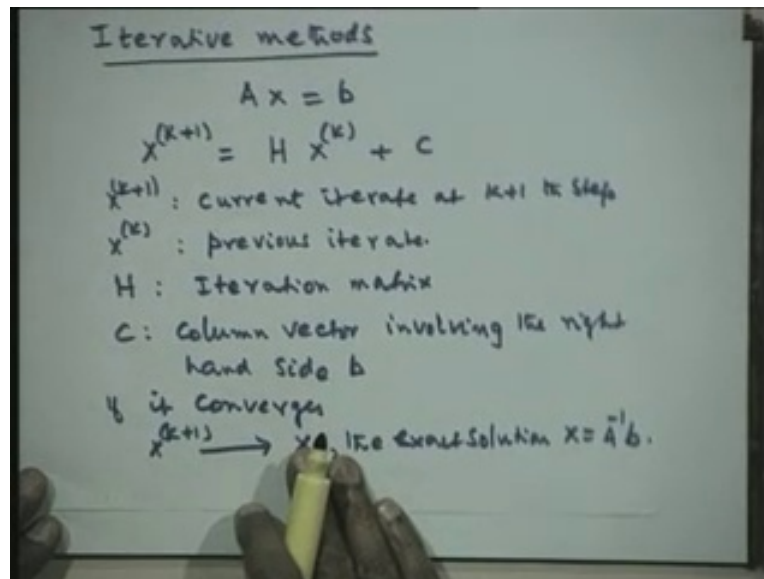 Iterative methods
A x = b
x^(k+1) = H x^(k) + C
x^(k+1) : current iterate at k+1 th step
x^(k) : previous iterate.
H : Iteration matrix
C : Column vector involving the right
hand side b
if it converges
x^(k+1) → x, the exact solution x = A^-1 b.